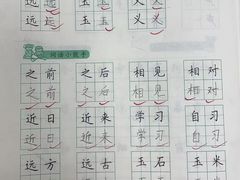 远远 玉玉 义义
远远 玉玉 义义
词语小能手
之前 之后 相见 相对
之前 之后 相见 相对
近日 近来 学习 自习
近日 近来 学习 自习
远方 远古 玉石 玉米